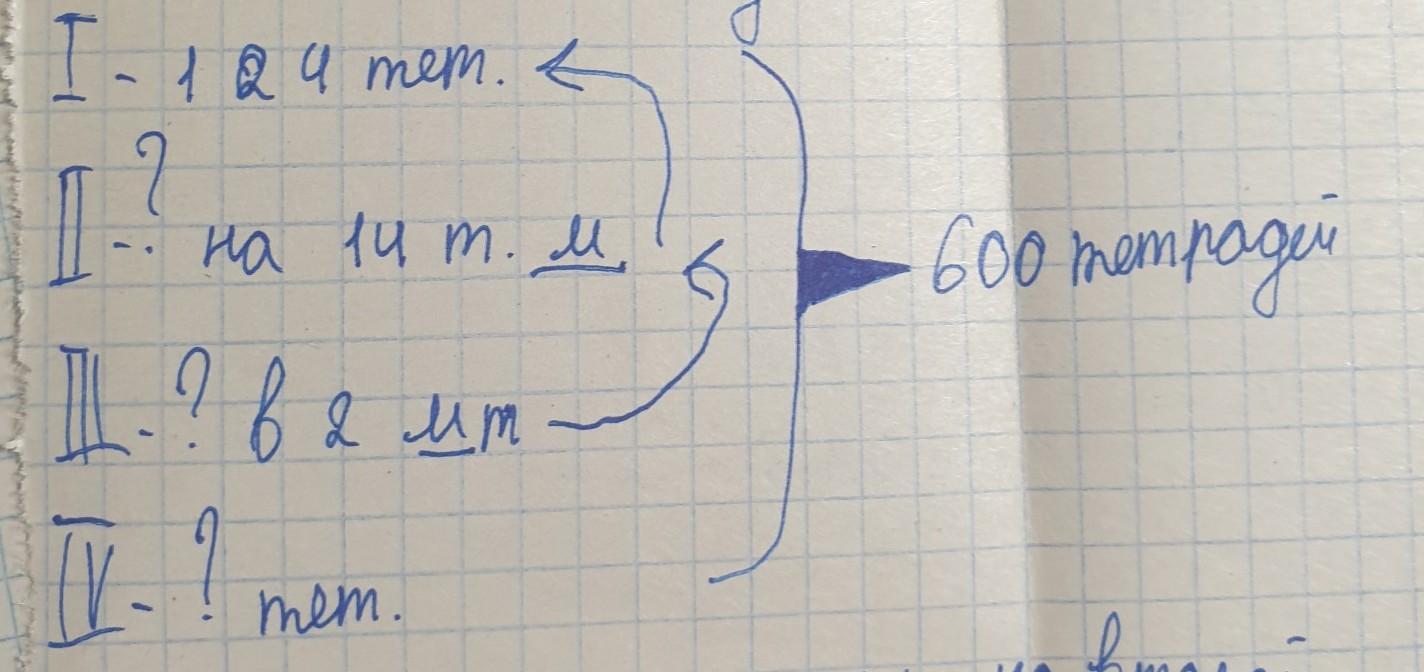 I - 124 тет.
II - ? на 14 т. м
600 тетрадей
III - ? в 2 м т
IV - ? тет.